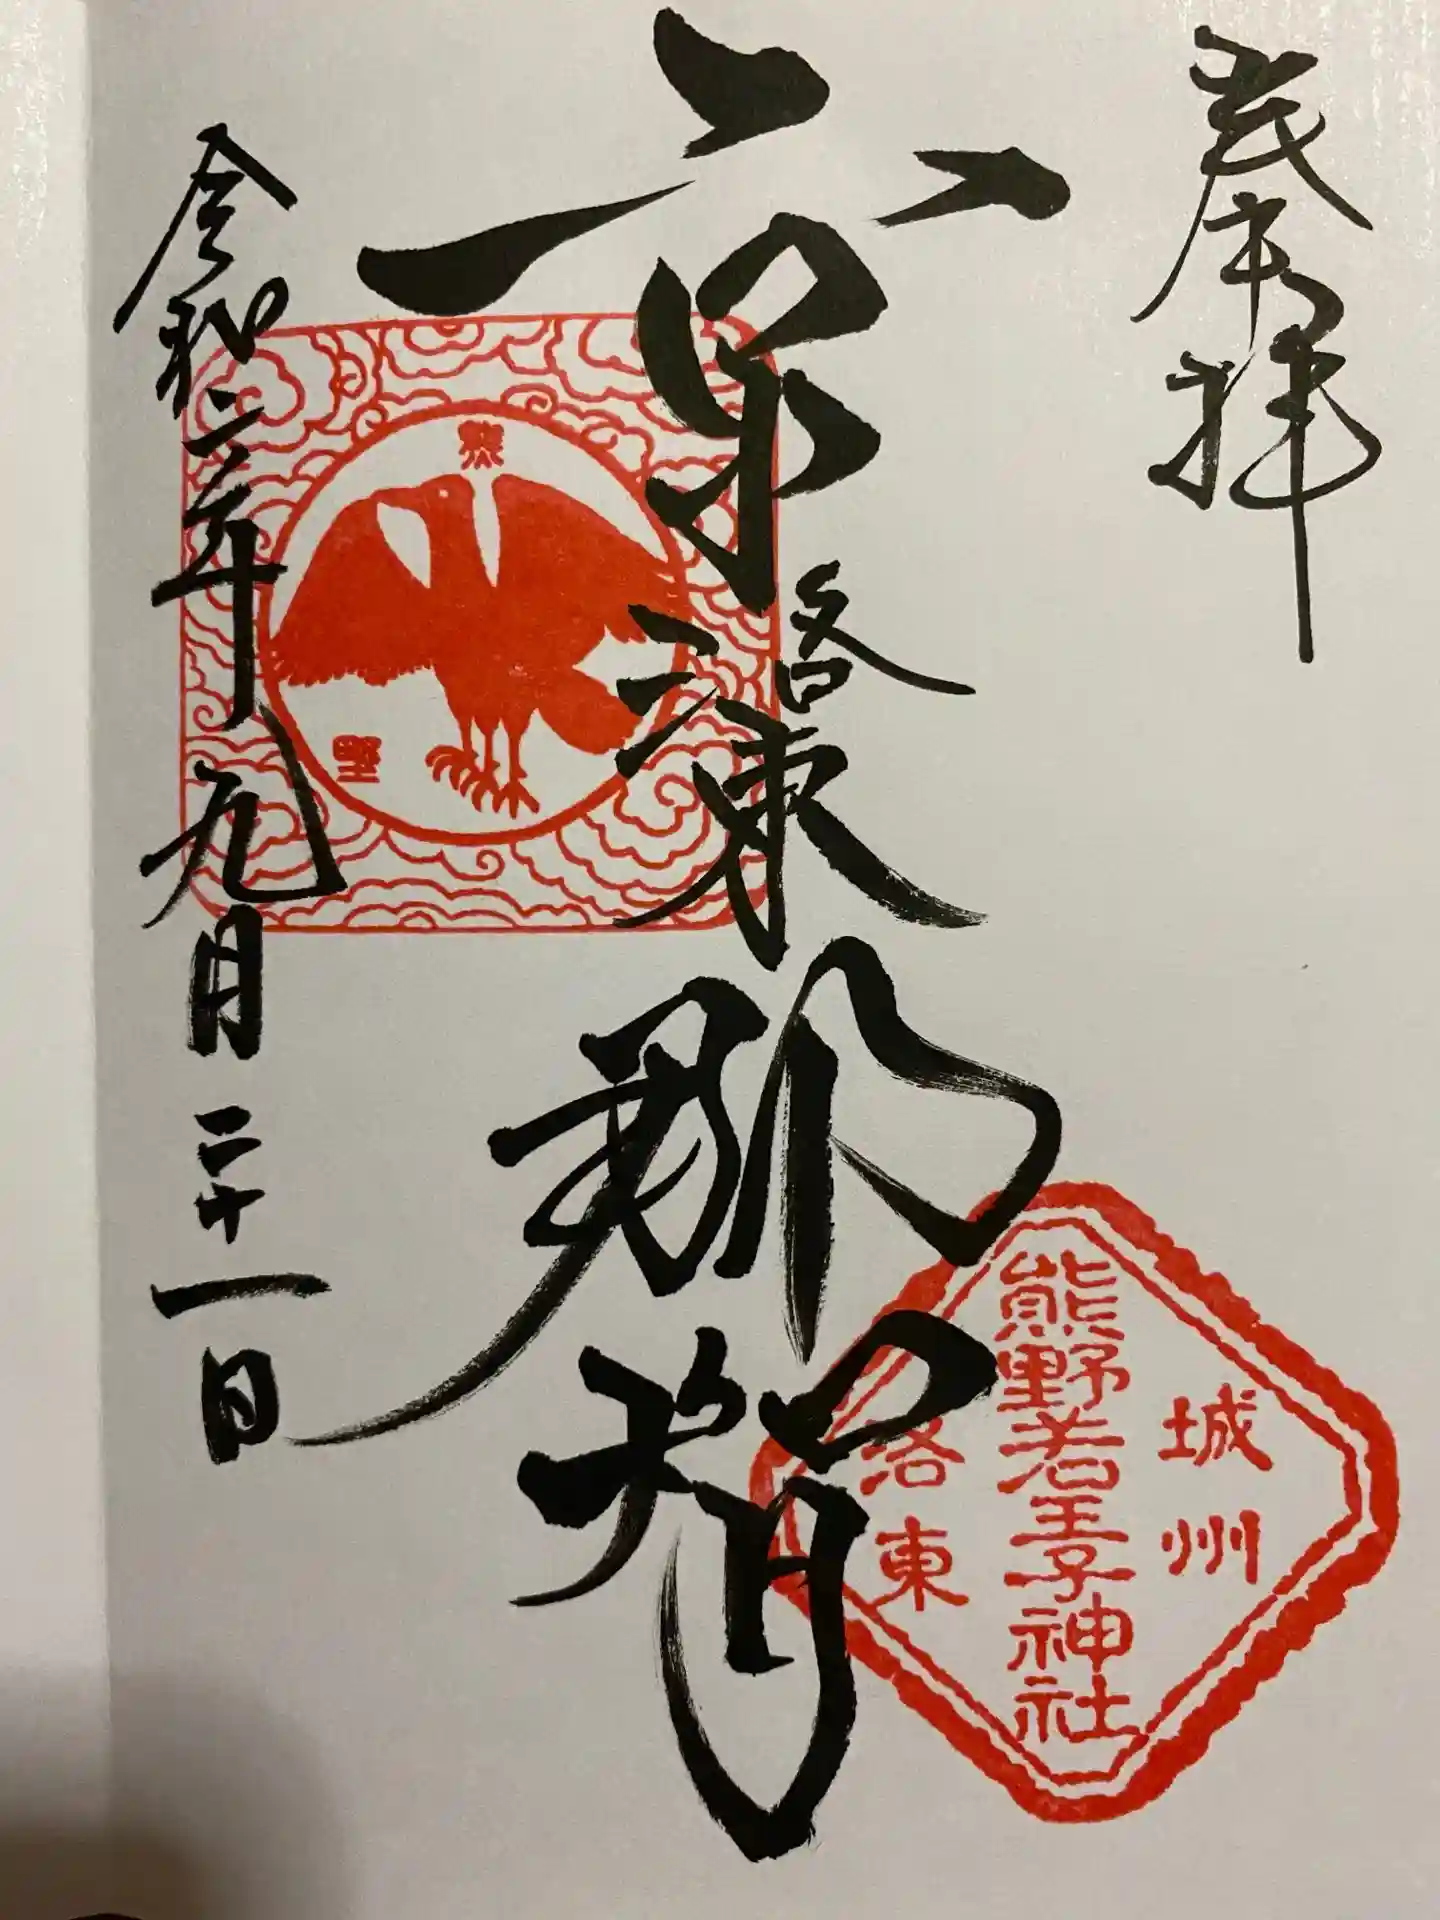 奉拝
京洛東那智
城州
熊野若王子神社
洛東
熊
令和二年九月二十一日